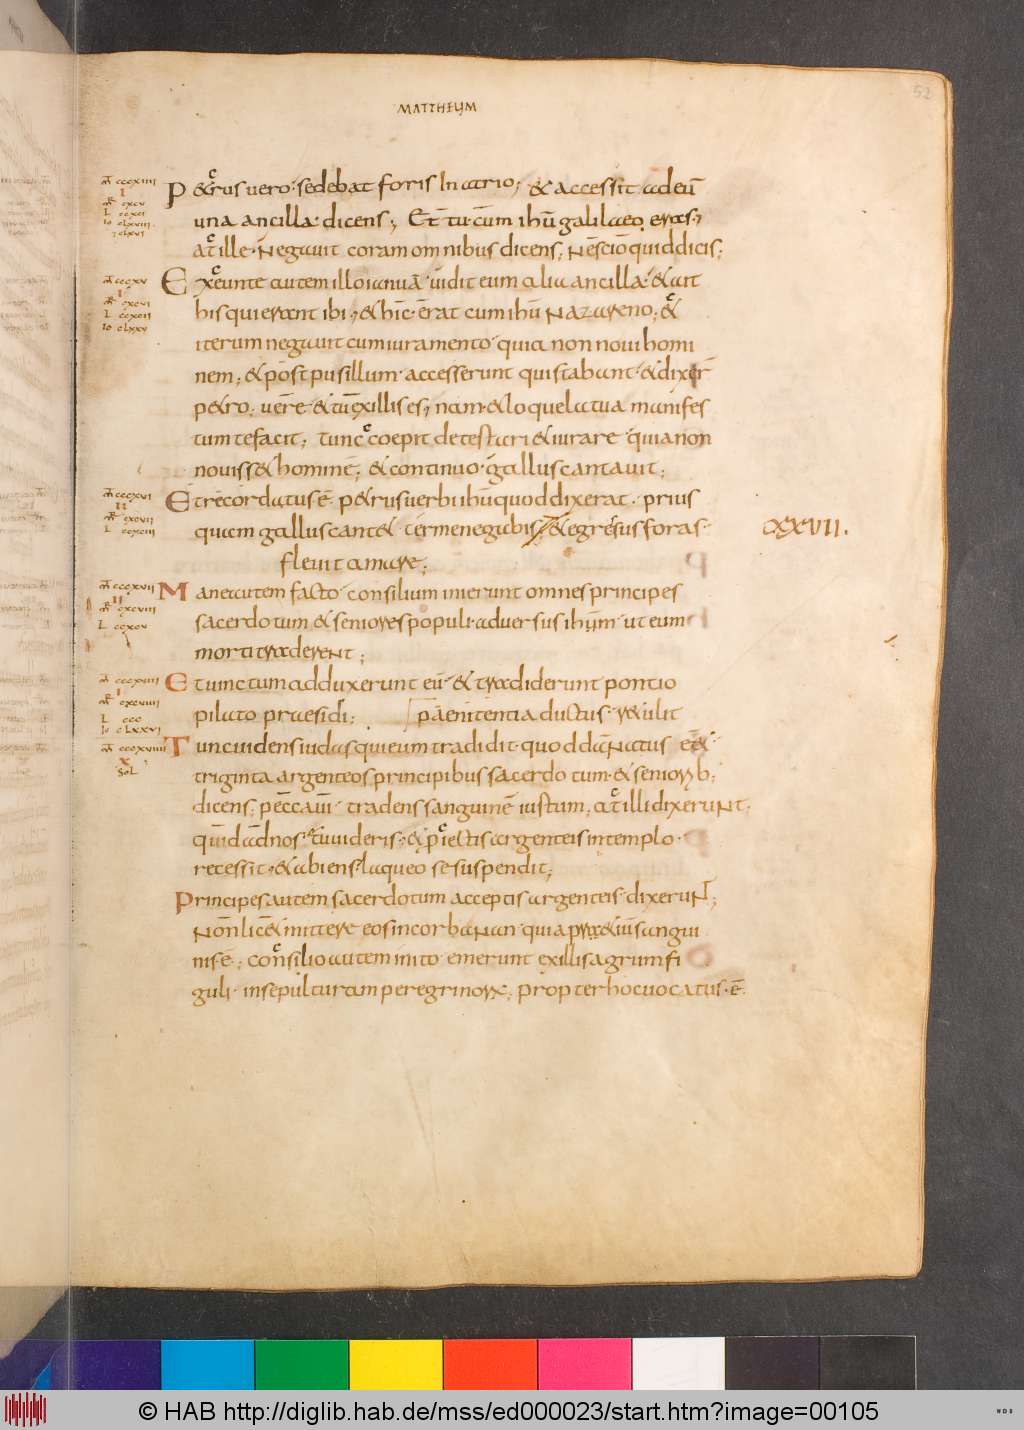 MATTHEUM
52
Petrus vero· sedebat foris In atrio; & accessit ad eū
una ancilla· dicens; Et tu cum ihū galilaeo eras;
At ille· Negavit coram omnibus dicens; Nescio quid dicis;
Exeunte autem illo ianuā· vidit eum alia ancilla· & ait
his qui erant ibi; & hic erat cum ihū Nazareno; &
iterum negavit cum iuramento· quia non novi homi
nem; & post pusillum· accesserunt qui stabant· & dixer̄
petro; vere & tu ex illis es; nam & loquela tua manifes
tum te facit; tunc coepit detestari & iurare· quia non
novisset hominē; & continuo· gallus cantavit;
Et recordatus ē· petrus verbi ihū quod dixerat· prius
quam gallus cantet ter me negabis & egressus foras·
cxxvii.
flevit amare;
Mane autem facto· consilium inierunt omnes principes
sacerdotum & seniores populi· adversus ihum· ut eum
morti traderent;
Et vinctum adduxerunt eū· & tradiderunt pontio
pilato praesidi; paenitentia ductus· retulit
Tunc videns iudas qui eum tradidit· quod damnatus eēt
triginta argenteos principibus sacerdotum· & seniorib;
dicens; peccavi· tradens sanguinē iustum; At illi dixerunt;
quid ad nos; tu videris; & proiectis argenteis in templo·
recessit· & abiens· laqueo se suspendit;
Principes autem sacerdotum acceptis argenteis· dixerunt;
Non licet mittere eos in corbanan· quia praetiū sangui
nis ē; consilio autem inito· emerunt ex illis agrum fi
guli· in sepulturam peregrinorum; propter hoc vocatus· ē·
© HAB http://diglib.hab.de/mss/ed000023/start.htm?image=00105
WDB